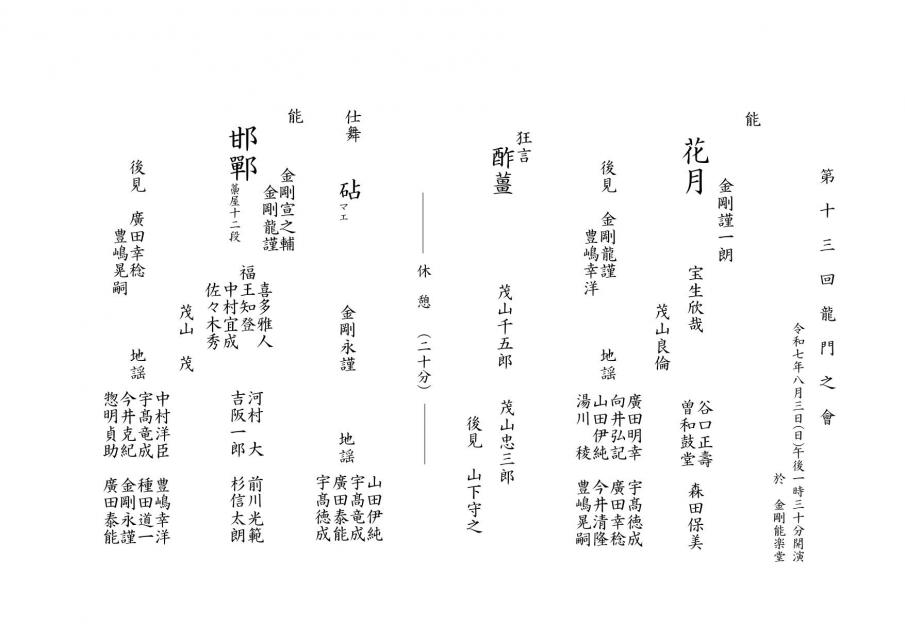 第十三回龍門之會
令和七年八月三日(日)午後一時三十分開演
於　金剛能楽堂
能
花月
金剛謹一朗
宝生欣哉
茂山良倫
谷口正壽
曽和鼓堂
森田保美
後見　金剛龍謹
豊嶋幸洋
地謡
廣田明幸　宇髙徳成
向井弘記　廣田幸稔
山田伊純　今井清隆
湯川　稜　豊嶋晃嗣
狂言
酢薑
茂山千五郎　茂山忠三郎
後見　山下守之
休憩　(二十分)
仕舞
砧　マエ
金剛永謹
地謡
山田伊純
宇髙竜成
廣田泰能
宇髙徳成
能
邯鄲
藁屋十二段
金剛宣之輔
金剛龍謹
福王知登
喜多雅人
中村宜成
佐々木秀
茂山　茂
河村　大　前川光範
吉阪一郎　杉信太朗
後見　廣田幸稔
豊嶋晃嗣
地謡
中村洋臣　豊嶋幸洋
宇髙竜成　種田道一
今井克紀　金剛永謹
惣明貞助　廣田泰能